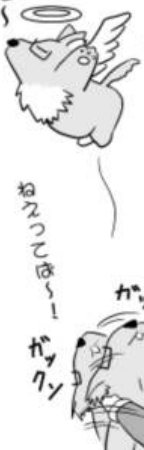 ねえってば～!
ガッ
ガックン